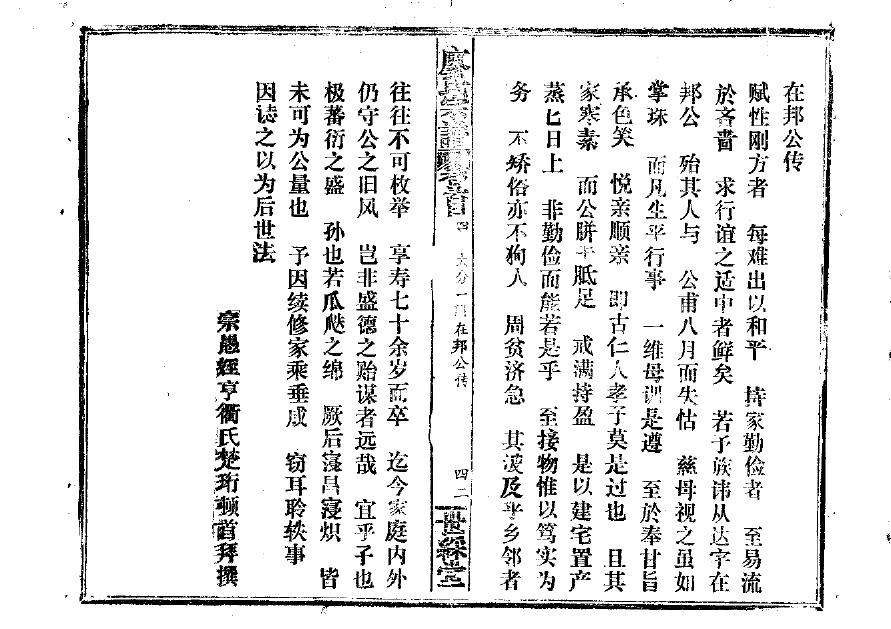 在邦公传
赋性刚方者　每难出以和平　持家勤俭者　至易流
於吝啬　求行谊之适中者鲜矣　若予族讳从达字在
邦公　殆其人与　公甫八月而失怙　慈母视之虽如
掌珠　而凡生平行事　一维母训是遵　至於奉甘旨
承色笑　悦亲顺亲　即古仁人孝子莫是过也　且其
家寒素　而公胼手胝足　戒满持盈　是以建宅置产
蒸匕日上　非勤俭而能若是乎　至接物惟以笃实为
务　不矫俗亦不狥人　周贫济急　其波及乎乡邻者
廖氏 卷首 四 大分一 在邦公传 四二 堂
往往不可枚举　享寿七十余岁而卒　迄今家庭内外
仍守公之旧风　岂非盛德之贻谋者远哉　宜乎子也
极蕃衍之盛　孙也若瓜瓞之绵　厥后寖昌寖炽　皆
未可为公量也　予因续修家乘垂成　窃耳聆轶事
因志之以为后世法
宗愚经亨衢氏楚珩顿首拜撰